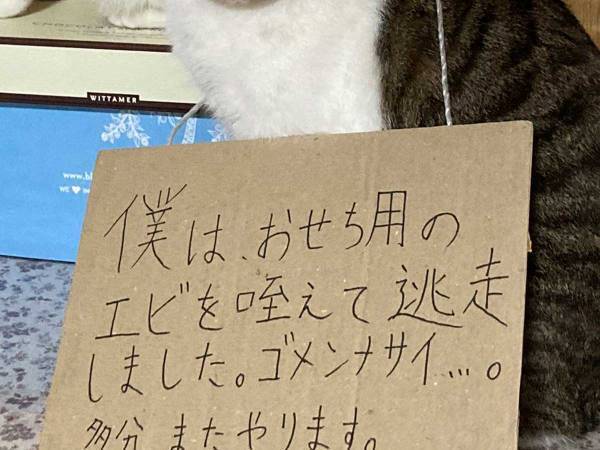 WITTAMER
www.bl
WE
僕は、おせち用の
エビを咥えて逃走
しました。ゴメンナサイ…。
多分またやります。